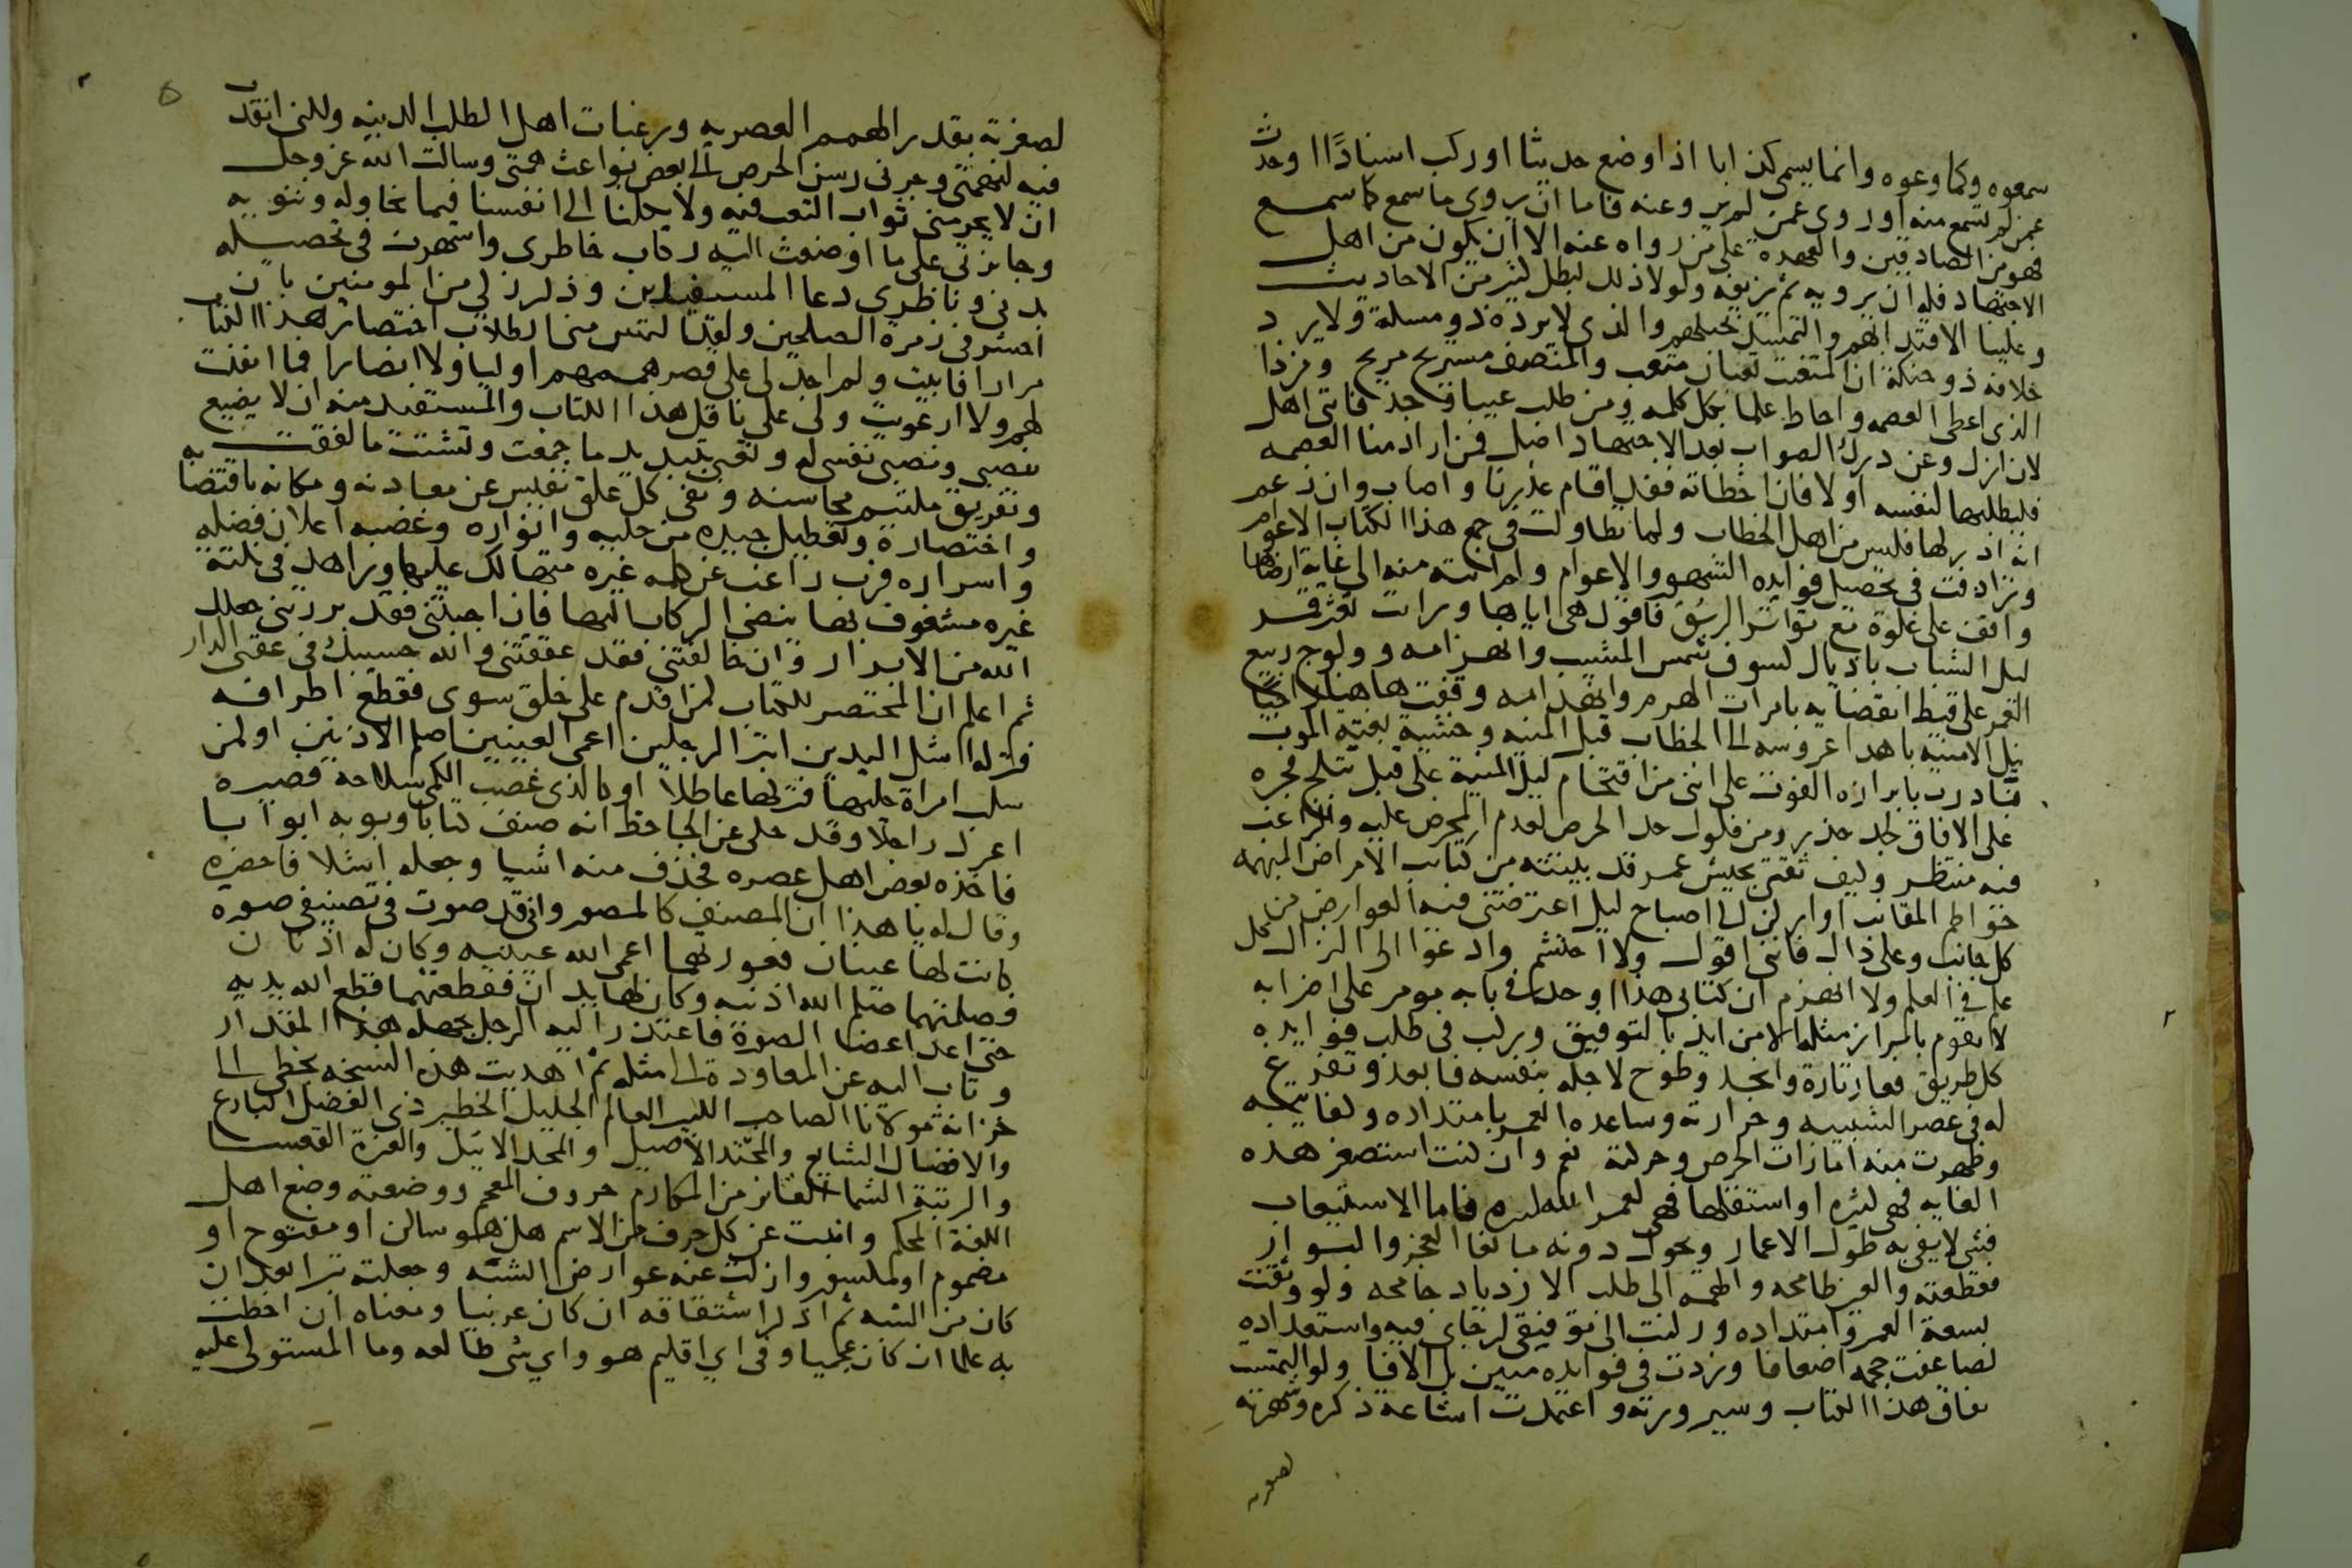 سمعوه وكما وعوه وانما يسمى كذابا اذا وضع حديثا او ركب اسنادًا او حدث
عمن لم يسمع منه او روى عمن لم ير وعنه فاما ان يروى ما سمع كما سمع
فهو من الصادقين والعهدة على من رواه عنه الا ان يكون من اهل
الاجتهاد فله ان يرويه ثم يزيفه ولولا ذلك لبطل كثير من الاحاديث
وعلينا الاقتدا بهم والتمسك بحبلهم والذى لا يرده ذو مسلة ولا يرد
خلافه ذو حنكة ان المتعنت تعبان متعب والمنصف مستريح مريح ومن ذا
الذى اعطى العصمه واحاط علما بكل كلمه ومن طلب عيبا وجد فانى اهل
لان ازل وعن درك الصواب بعد الاجتهاد اضل فمن اراد منا العصمه
فليطلبها لنفسه اولا فان اخطاته فقد اقام عذرنا واصاب وان زعم
انه ادركها فليس من اهل الخطاب ولما تطاولت فى جمع هذا الكتاب الاعوام
وترادفت فى تحصيل فوايده الشهور والاعوام ولم انته منه الى غاية ارضاها
واقف على غلوة مع تواتر الرشق فاقول هى اياها ورات تعثر قمر
ليل الشباب باذيال كسوف شمس المشيب وانهزامه وولوج ربيع
العمر على قيظ انقضايه بامرات الهرم وانهدامه وقفت هاهنا راجيًا
نيل الامنيه باهدا عروسه الى الخطاب قبل المنيه وخشية بغتة الموت
فبادرت بابرازه الفوت على اننى من اقتحام ليل المنية على قبل تبلج فجره
على الافاق لجد حذر ومن فلول حد الحرص لعدم المحرص عليه والراغب
فيه منتظر وكيف ثقتى بجيش عمر قد بيتته من كتايب الامراض المبهمه
خواطم المقانب او اركن الى اصباح ليل اعترضتنى فيه العوارض من
كل جانب وعلى ذلك فاننى اقول ولا احتشم وادعوا الى النزال كل
علم فى العلم ولا انهزم ان كتابى هذا اوحد فى بابه مومر على اضرابه
لا يقوم بابراز مثله الا من ايد بالتوفيق وركب فى طلب فوايده
كل طريق فغار تارة وانجد وطوح لاجله بنفسه فابعد وتفرغ
له فى عصر الشبيبه وحرارته وساعده العمر بامتداده وكفايته
وظهرت منه امارات الحرص وحركته نعم وان كنت استصغر هذه
الغايه فهى كبيره او استقلها فهى لعمر الله كثيره فاما الاستيعاب
فشى لا يفى به طول الاعمار ويحول دونه مانعا العجز والبوار
فقطعته والعين طامحه والهمه الى طلب الازدياد جامحه ولو وثقت
بسعة العمر وامتداده وركنت الى توفيقى لرجاى فيه واستعداده
لضاعفت حجمه اضعافا وزدت فى فوايده مئين بل الافا ولو التمست
نفاق هذا الكتاب وسيرورته واعتمدت اشاعة ذكره وشهرته
لصغرته
لصغرته بقدر الهمم العصريه ورغبات اهل الطلب الدنيه ولكنى انقدت
فيه لنهمتى وجرنى رسن الحرص الى بعض بواعث همتى وسالت الله عز وجل
ان لا يحرمنى ثواب التعب فيه ولا يكلنا الى انفسنا فيما نحاوله وننويه
وجايزتى على ما اوضعت اليه ركاب خاطرى واسهرت فى تحصيله
بدنى وناظرى دعا المستفيدين وذكر زكى من المومنين بان
احشر فى زمرة الصلحين ولقد التمس منى الطلاب اختصار هذا الكتاب
مرارا فابيت ولم اجد لى على قصر هممهم اوليا ولا انصارا فما انقدت
لهم ولا ارعويت ولى على ناقل هذا الكتاب والمستفيد منه ان لا يضيع
نصبى ونصبى نفسى له وتعبى بتبديد ما جمعت وتشتيت ما لفقت
وتفريق ملتيم محاسنه ونفى كل علق نفيس عن معادنه ومكانه باقتضابه
واختصاره وتعطيل جيده من حليه وانواره وغصبه اعلان فضله
واسراره فرب راغب عن كلمه غيره متهالك عليها وزاهد فى نكتة
غيره مشغوف بها ينضى الركاب اليها فان اجبتنى فقد بررتنى جعلك
الله من الابرار وان خالفتنى فقد عققتنى والله حسيبك فى عقبى الدار
ثم اعلم ان المختصر لكتاب كمن اقدم على خلق سوى فقطع اطرافه
فتركه اشل اليدين ابتر الرجلين اعمى العينين اصلم الاذنين او كمن
سلب امراة حليها فتركها عاطلا او كالذى غصب الكمى سلاحه فصيره
اعزل راجلا وقد حكى عن الجاحظ انه صنف كتابا وبوبه ابوابا
فاخذه بعض اهل عصره فحذف منه اشيا وجعله اشلا فاحضره
وقال له يا هذا ان المصنف كالمصور وانى قد صورت فى تصنيفى صوره
كانت لها عينان فعورتهما اعمى الله عينيه وكان له اذنان
فصلمتهما صلم الله اذنيه وكان لها يدان فقطعتهما قطع الله يديه
حتى عد اعضا الصورة فاعتذر اليه الرجل بجهله هذا المقدار
وتاب اليه عن المعاودة الى مثله ثم اهديت هذه النسخه بخطى الى
خزانة مولانا الصاحب الكبير العالم الجليل الخطير ذى الفضل البارع
والافضال الشايع والمحتد الاصيل والمجد الاثيل والعزة القعسا
والرتبة الشما الفايز من المكارم حروف المعجم ووضعته وضع اهل
اللغة المحكم وابنت عن كل حرف من الاسم هل هو ساكن او مفتوح او
مضموم او مكسور وازلت عنه عوارض الشبه وجعلته تبرا بعد ان
كان من الشبه ثم اذكر اشتقاقه ان كان عربيا ومعناه ان احطت
به علما ان كان عجميا وفى اي اقليم هو واي شى طالعه وما المستولى عليه